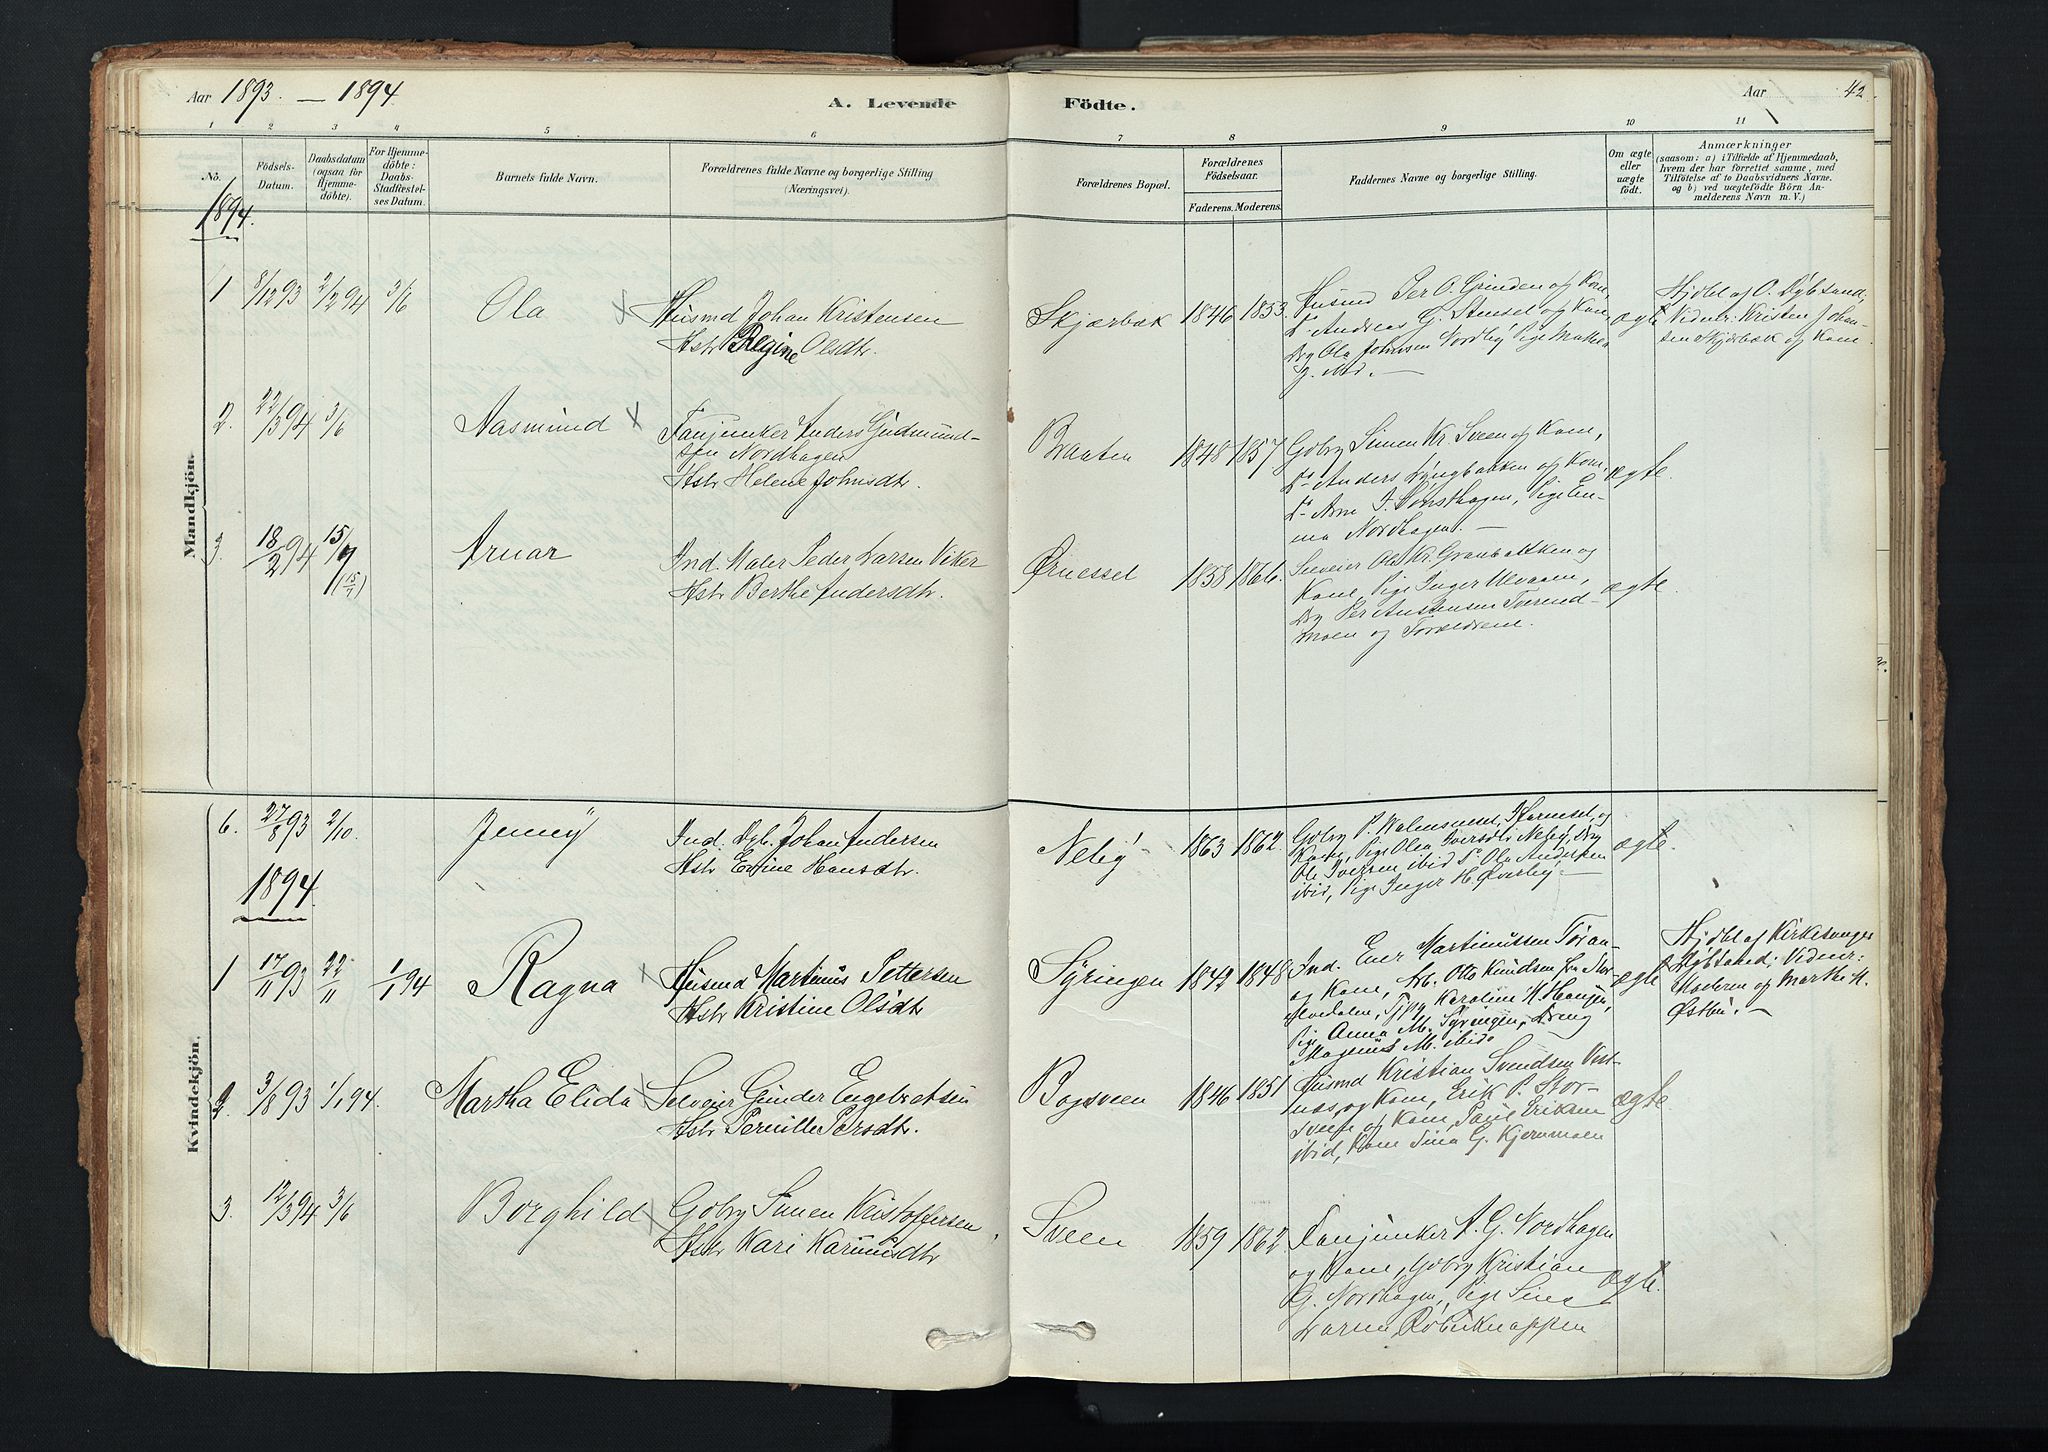 Aar 1893. — 1894.
A. Levende
Födte.
Aar
42.
1 2 3 4 5 6 7 8 9 10 11
No.
Födsels-
Datum.
Daabsdatum
(ogsaa for
Hjemme-
döbte).
For Hjemme-
döbte:
Daabs-
Stadfæstel-
ses Datum.
Barnets fulde Navn.
Forældrenes fulde Navne og borgerlige Stilling
(Næringsvei).
Forældrenes Bopæl.
Forældrenes
Födselsaar.
Faderens. Moderens.
Faddernes Navne og borgerlige Stilling.
Om ægte
eller
uægte
födt.
Anmærkninger
(saasom: a) i Tilfælde af Hjemmedaab,
hvem der har forrettet samme, med
Tilföielse af to Daabsvidners Navne.
og b) ved uægtefödte Börn An-
melderens Navn m. V.)
Mandkjön.
1894.
1 8/12 93 2/2 94 3/6
Ola
Husmd Johan Kristensen
Hstr Regine Olsdtr.
Skjærbæk
1846 1853.
Husmd Per O. Grinden og Kone,
Do Andreas G. Stensel og Kone
Drg Ola Johnsen Nordby, Pige
ægte
Hjdbt af O. Dybsand;
Vidner: Kristen Johan-
sen Skjærbæk og Kone
2. 22/3 94 3/6
Aasmund
Fanjunker Anders Gudmund-
sen Nordhagen
Hstr Helene Johnsdtr.
Braaten
1848 1857
Gdbrg Simen Kr. Sveen og Kone,
Do Anders Lyngbakken og Kone
Do Arne J. Tønsthagen, Pige Em-
ma Nordhagen. —
ægte.
3. 18/2 94 15/7 (15/7)
Arnar
Ind. Maler Peder Larsen Viker
Hstr Berthe Andersdtr.
Ørnessel
1858 1866.
Selveier Ole Kr. Granbakken og
Kone, Pige Inger Ulvaaen,
Drg Per Austensen Tørend-
moen og Forældrene.
ægte.
Kvindekjön.
6. 27/8 93 2/10.
Jenny
Ind. Dgb. Johan Andersen
Hstr Eline Hansdtr.
Neby
1863 1862.
Gdbrg P. Halmsnæs, og
Kone, Pige Olea Iversdtr Neby, Drg
Ole Iversen ibid, Do Ola Andersen
ibid, Pige Inger H. Øverby. —
ægte.
1894.
1 17/11 93 22/11 1/1 94
Ragna
Husmd Martinus Pettersen
Hstr Kristine Olsdtr
Syringen
1842 1848
Ind. Ener Martinussen
og Kone, Arb. Otto Knudsen fra Stor-
elvedalen, Karoline K. Haugen,
Pige Anna M. Syringen, Dreng
Magnus M. ibid.
ægte
Hjdbt af Kirkesanger
Dybtahed; Vidner:
Moderen og Marthe K.
Østby. —
2. 3/8 93 1/1 94.
Martha Elida
Selveier Gunder Engebretsen
Hstr Pernille Persdtr.
Bagsveen
1846 1851
Husmd Kristian Svendsen Vest-
næs, og Kone, Erik P. Stor-
sveen og Kone, Paul Eriksen
ibid, Kone Sina G. Kjernmoen
ægte.
3. 12/3 94 3/6
Borghild
Gdbrg Simen Kristoffersen,
Hstr Kari Karinusdtr
Sveen
1859 1862
Fanjunker A. G. Nordhagen
og Kone, Gdbrg Kristian
G. Nordhagen, Pige Sina
Larsen Røbeknappen
ægte.